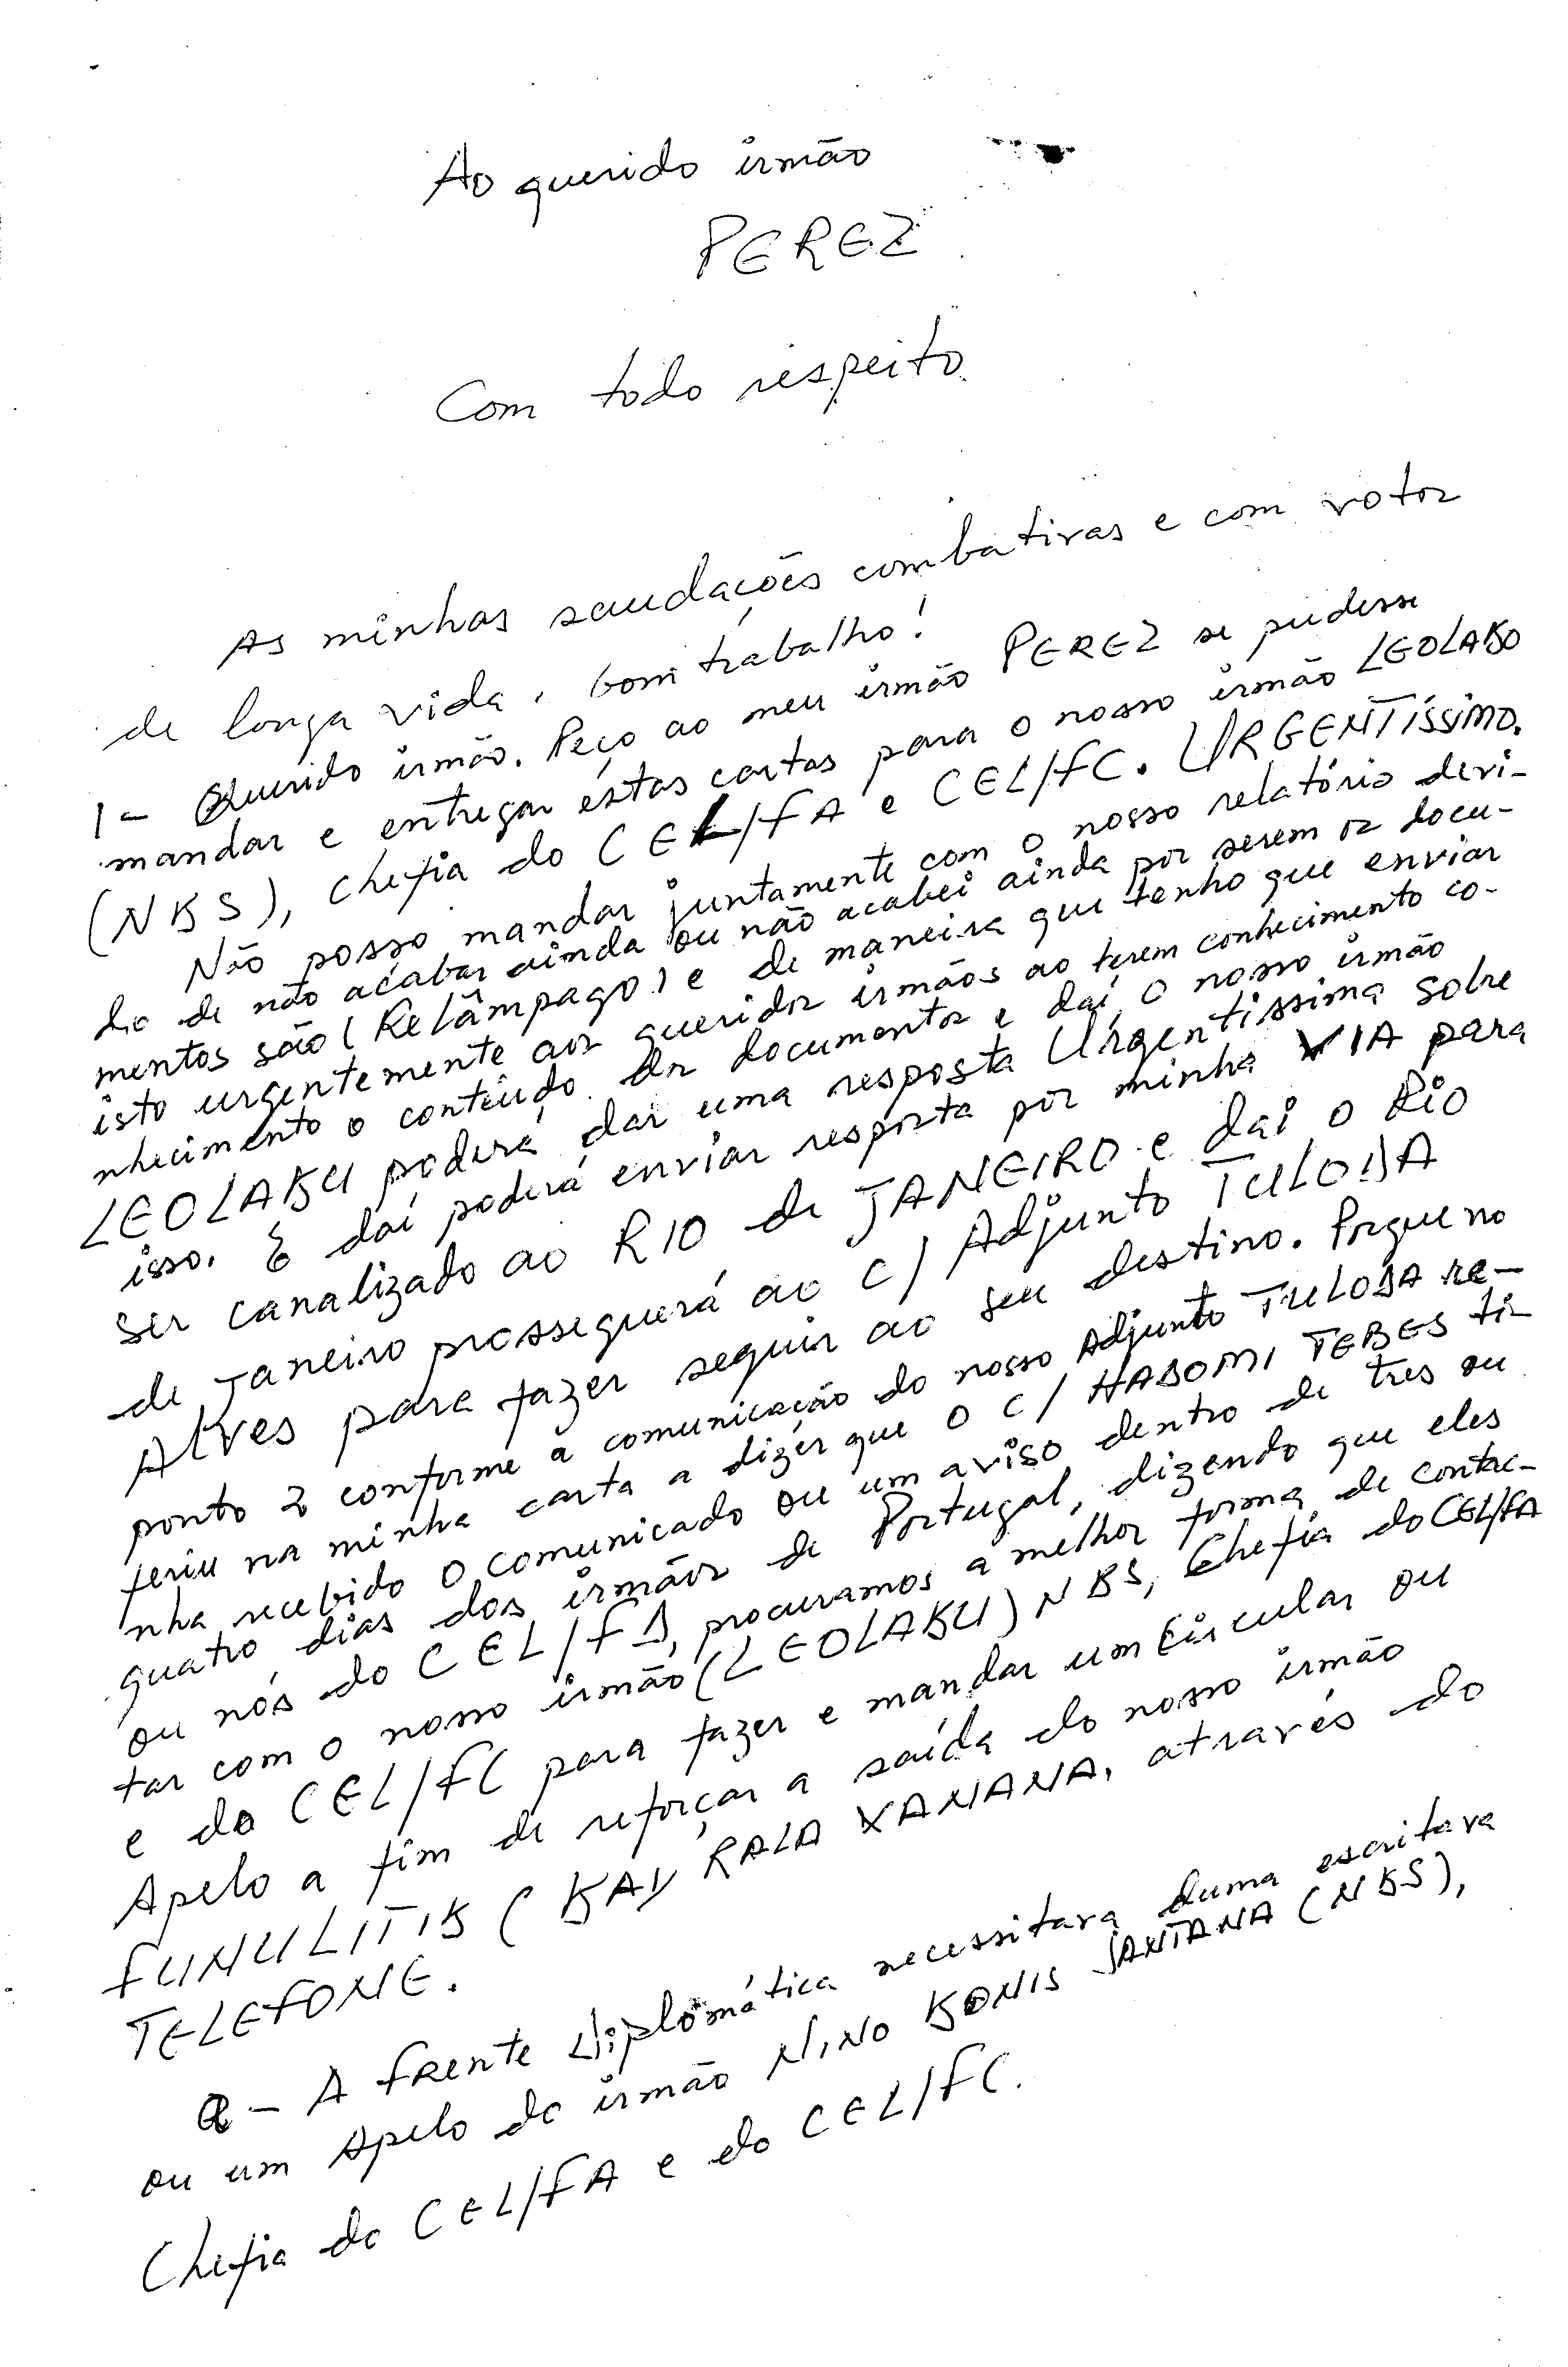 Ao querido irmão
PEREZ
Com todo respeito
As minhas saudações combativas e com votos
de longa vida, bom trabalho!
1- Querido irmão. Peço ao meu irmão PEREZ se pudesse
mandar e entregar éstas cartas para o nosso irmão LEOLAKO
(NKS), chefia do CEL/FA e CEL/FC. URGENTÍSSIMO.
Não posso mandar juntamente com o nosso relatório devi-
do de não acabar ainda ou não acabei ainda por serem os docu-
mentos são (Relâmpagos) e de maneira que tenho que enviar
isto urgentemente aos queridos irmãos ao terem conhecimento co-
nhecimento o conteúdo dos documentos e daí o nosso irmão
LEOLAKU poderá dar uma resposta Urgentíssima sobre
isso. E daí poderá enviar resposta por minha VIA para
ser canalizado ao RIO de JANEIRO e daí o Rio
de Janeiro prosseguerá ao C/ Adjunto TULODA
Alves para fazer seguir ao seu destino. Porque no
ponto 2 conforme a comunicação do nosso Adjunto TULODA re-
feriu na minha carta a dizer que o C/ HADOMI TEBES ti-
nha recebido o comunicado ou um aviso dentro de tres ou
quatro dias dos irmãos de Portugal, dizendo que eles
ou nós do CEL/FD, procuramos a melhor forma de contac-
tar com o nosso irmão (LEOLAKU) NKS, Chefia do CEL/FA
e do CEL/FC para fazer e mandar um Circular ou
Apelo a fim de reforçar a saída do nosso irmão
FUNULITIK (KAY RALA XANANA, através do
TELEFONE.
2- A FRente Diplomática necessitava duma escritava
ou um Apelo do irmão NINO KONIS SANTANA (NKS),
Chefia do CEL/FA e do CEL/FC.